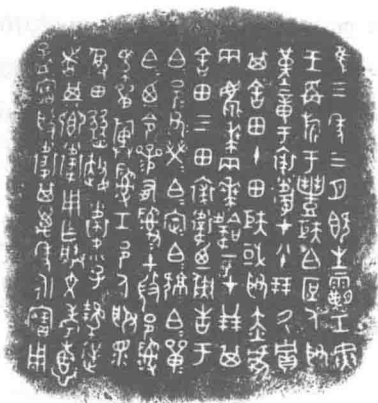 隹三年三月既生霸壬寅
王爯旂于豐矩白庶人取
堇章于裘衛才八十朋氒貯
其舍田十田矩或取赤虎
兩麀𠦪兩𠦪韐一才廿朋其
舍田三田裘衛乃彘告于
白邑父榮白定白白單
白乃令參有司司土微邑司
馬單旟司工邑人服眾
受田燹趞衛小子逆
者其鄉衛用乍朕文考惠
孟寶般衛其萬年永寶用